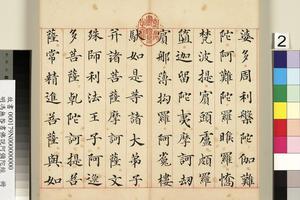 婆多周利槃陀伽難
陀阿難陀羅睺羅憍
梵波提賓頭盧頗羅
墮迦留陀夷摩訶劫
賓那薄拘羅阿㝹樓
馱如是等諸大弟子
并諸菩薩摩訶薩文
殊師利法王子阿逸
多菩薩乾陀訶提菩
薩常精進菩薩與如
2